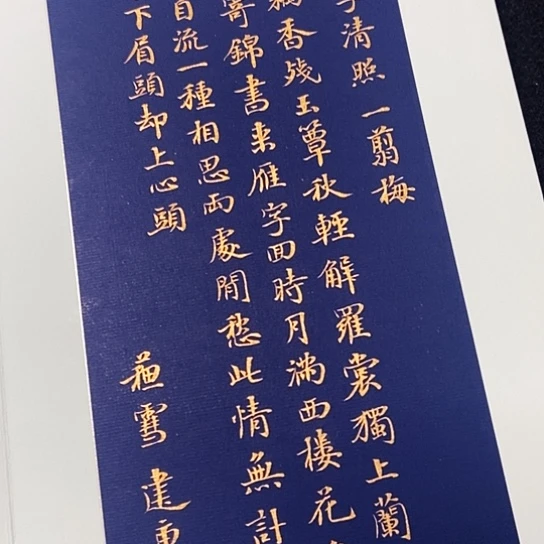 清照一翦梅
藕香残玉簟秋輕解羅裳獨上蘭
寄錦書来雁字回時月滿西樓花
自流一種相思兩處閒愁此情無計
下眉頭却上心頭 蘓雪建